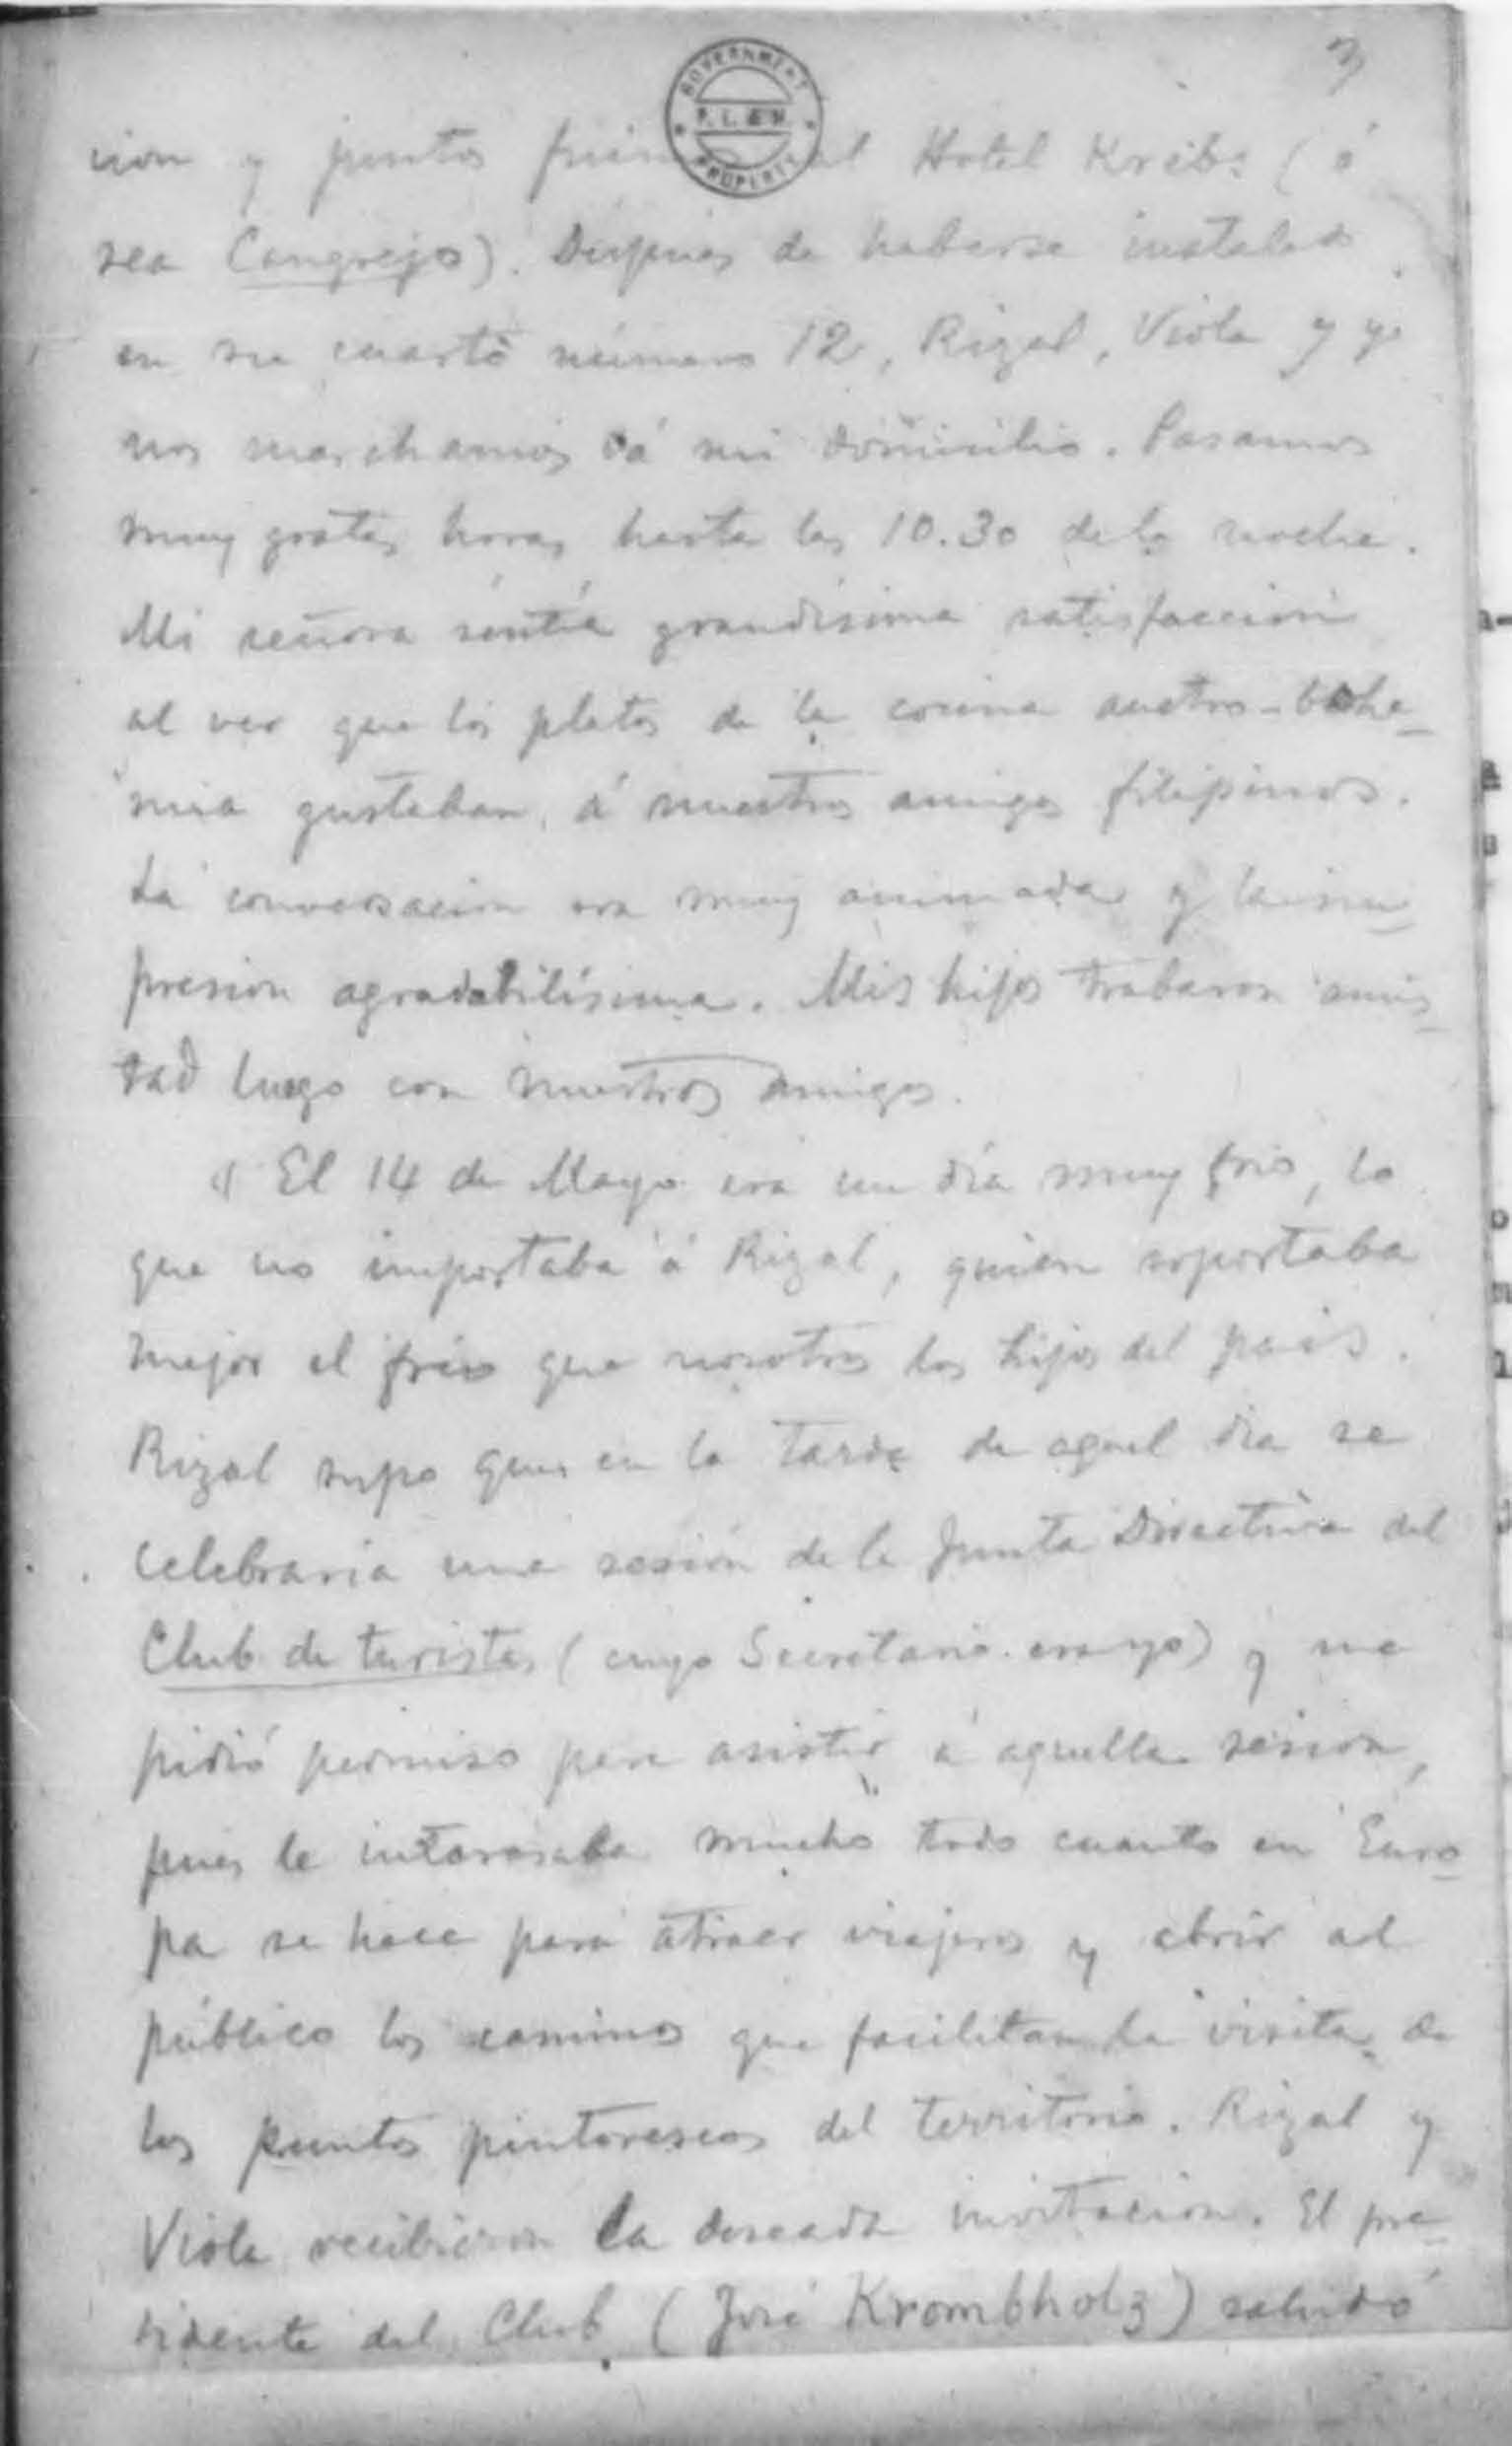 3
GOVERNMENT
P. L. & M.
PROPERTY
cion y juntos fuimos al Hotel Krebs (ó
sea Cangrejo). Después de haberse instalado
en su cuarto número 12, Rizal, Viola y yo
nos marchamos á mi domicilio. Pasamos
muy gratas horas hasta las 10.30 de la noche.
Mi señora sentía grandísima satisfacción
al ver que los platos de la cocina austro-bohe-
mia gustaban á nuestros amigos filipinos.
La conversación era muy animada y la im-
presion agradabilísima. Mis hijos trabaron amis-
tad luego con nuestros amigos.
El 14 de Mayo era un día muy frio, lo
que no importaba á Rizal, quien soportaba
mejor el frío que nosotros los hijos del país.
Rizal supo que en la tarde de aquel día se
celebraría una sesión de la Junta Directiva del
Club de turistas (cuyo Secretario era yo) y me
pidió permiso para asistir á aquella sesion,
pues le interesaba mucho todo cuanto en Euro-
pa se hace para atraer viajeros y abrir al
público los caminos que facilitan la visita de
los puntos pintorescos del territorio. Rizal y
Viola recibieron la deseada invitacion. El pre-
sidente del Club (José Krombholz) saludó